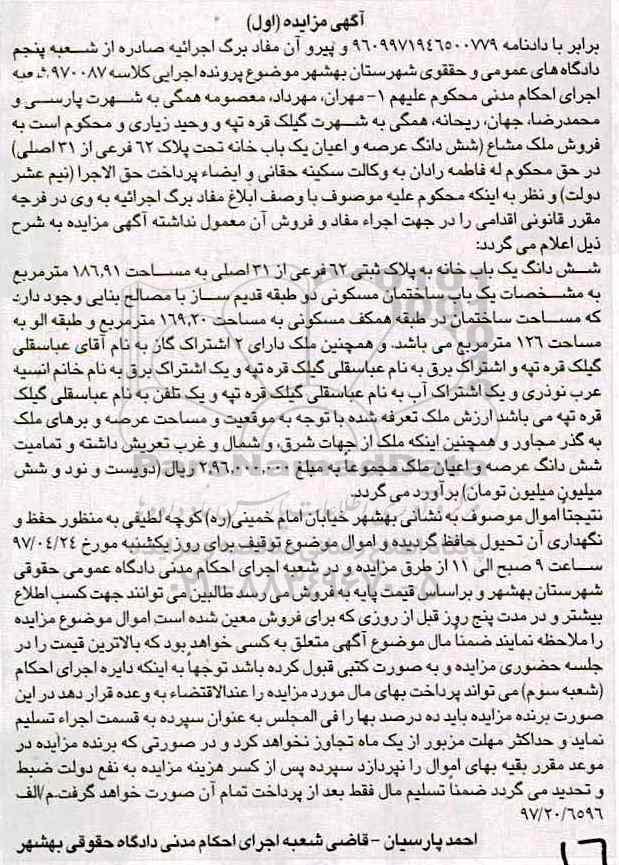 آگهی مزایده (اول)
برابر با دادنامه ۹۶۰۹۹۷۱۹۴۶۵۰۰۷۷۹ و پیرو آن مفاد برگ اجرائیه صادره از شعبه پنجم
دادگاه های عمومی و حقوقی شهرستان بهشهر موضوع پرونده اجرایی کلاسه ۹۷۰۰۸۷ شعبه
اجرای احکام مدنی محکوم علیهم ۱- مهران، مهرداد، معصومه همگی به شهرت پارسی و
محمدرضا، جهان، ریحانه، همگی به شهرت گیلک قره تپه و وحید زیاری و محکوم است به
فروش ملک مشاع (شش دانگ عرصه و اعیان یک باب خانه تحت پلاک ۶۲ فرعی از ۳۱ اصلی)
در حق محکوم له فاطمه رادان به وکالت سکینه حقانی و ایضاء پرداخت حق الاجرا (نیم عشر
دولت) و نظر به اینکه محکوم علیه موصوف با وصف ابلاغ مفاد برگ اجرائیه به وی در فرجه
مقرر قانونی اقدامی را در جهت اجراء مفاد و فروش آن معمول نداشته آگهی مزایده به شرح
ذیل اعلام می گردد:
شش دانگ یک باب خانه به پلاک ثبتی ۶۲ فرعی از ۳۱ اصلی به مساحت ۱۸۶,۹۱ مترمربع
به مشخصات یک باب ساختمان مسکونی دو طبقه قدیم ساز با مصالح بنایی وجود دارد
که مساحت ساختمان در طبقه همکف مسکونی به مساحت ۱۶۹,۲۰ مترمربع و طبقه الو به
مساحت ۱۲۶ مترمربع می باشد. و همچنین ملک دارای ۲ اشتراک گاز به نام آقای عباسقلی
گیلک قره تپه و اشتراک برق به نام عباسقلی گیلک قره تپه و یک اشتراک برق به نام خانم انسیه
عرب نوذری و یک اشتراک آب به نام عباسقلی گیلک قره تپه و یک تلفن به نام عباسقلی گیلک
قره تپه می باشد ارزش ملک تعرفه شده با توجه به موقعیت و مساحت عرصه و برهای ملک
به گذر مجاور و همچنین اینکه ملک از جهات شرق، و شمال و غرب تعریش داشته و تمامیت
شش دانگ عرصه و اعیان ملک مجموعاً به مبلغ ۲,۹۶,۰۰۰,۰۰۰ ریال (دویست و نود و شش
میلیون میلیون تومان) برآورد می گردد.
نتیجتاً اموال موصوف به نشانی بهشهر خیابان امام خمینی(ره) کوچه لطیفی به منظور حفظ و
نگهداری آن تحیول حافظ گردیده و اموال موضوع توقیف برای روز یکشنبه مورخ ۹۷/۰۴/۲۴
ساعت ۹ صبح الی ۱۱ از طرق مزایده و در شعبه اجرای احکام مدنی دادگاه عمومی حقوقی
شهرستان بهشهر و براساس قیمت پایه به فروش می رسد طالبین می توانند جهت کسب اطلاع
بیشتر و در مدت پنج روز قبل از روزی که برای فروش معین شده است اموال موضوع مزایده
را ملاحظه نمایند ضمناً مال موضوع آگهی متعلق به کسی خواهد بود که بالاترین قیمت را در
جلسه حضوری مزایده و به صورت کتبی قبول کرده باشد توجهاً به اینکه دایره اجرای احکام
(شعبه سوم) می تواند پرداخت بهای مال مورد مزایده را عندالاقتضاء به وعده قرار دهد در این
صورت برنده مزایده باید ده درصد بها را فی المجلس به عنوان سپرده به قسمت اجراء تسلیم
نماید و حداکثر مهلت مزبور از یک ماه تجاوز نخواهد کرد و در صورتی که برنده مزایده در
موعد مقرر بقیه بهای اموال را نپردازد سپرده پس از کسر هزینه مزایده به نفع دولت ضبط
و تحدید می گردد ضمناً تسلیم مال فقط بعد از پرداخت تمام آن صورت خواهد گرفت.م/الف
۹۷/۲۰/۶۵۹۶
احمد پارسیان - قاضی شعبه اجرای احکام مدنی دادگاه حقوقی بهشهر
۱۶
ParsNamadData
۰۲۱-۸۸۳۴۹۶۷۰-۵